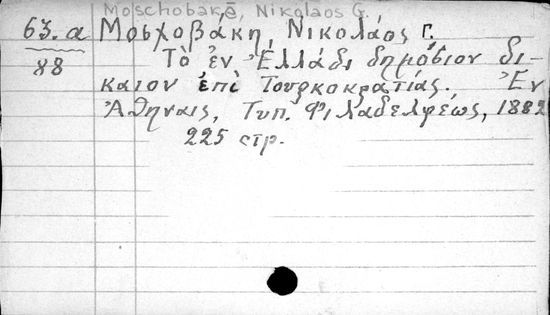 Moschobakē, Nikolaos G.
63.a Μοσχοβάκη, Νικολάος Γ.
88 Τὸ ἐν Ἑλλάδι δημόσιον δι-
καιον ἐπὶ Τουρκοκρατίας., Ἐν
Ἀθήναις, Τυπ. Φιλαδελφέως, 1882
225 стр.